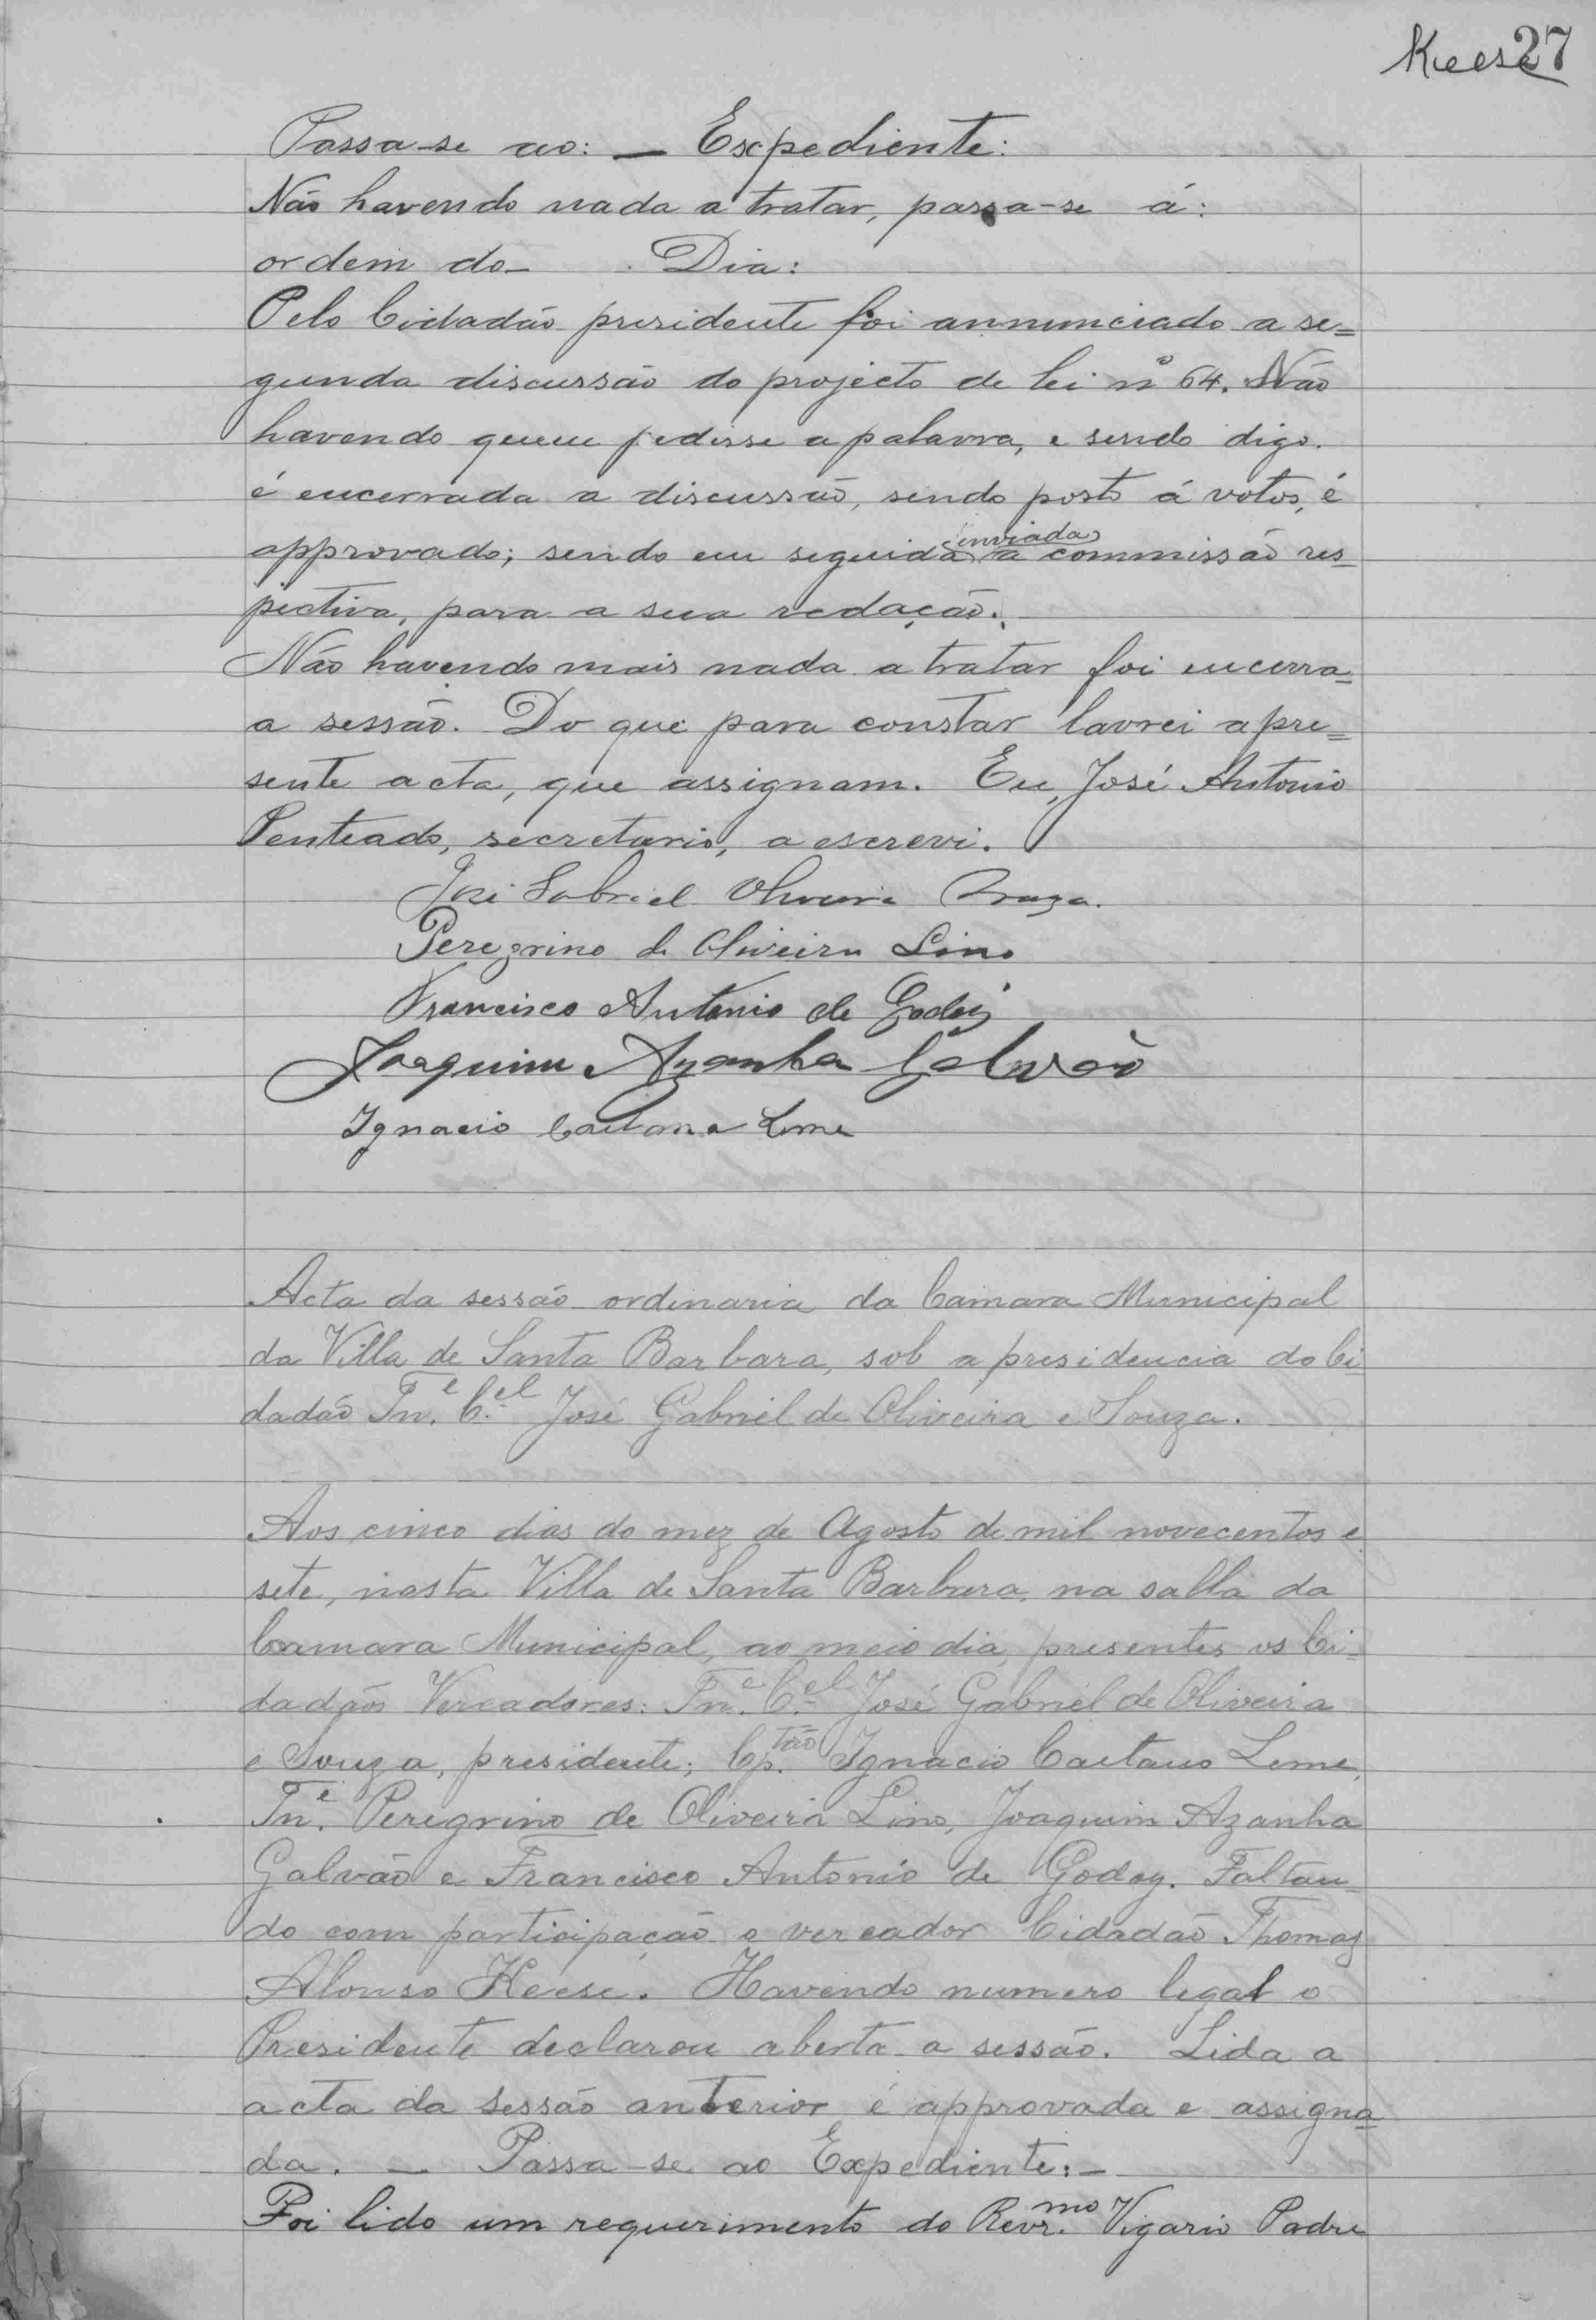 Keese 27
Passa-se ao: — Expediente:
Não havendo nada a tratar, passa-se á:
ordem do Dia:
Pelo Cidadão presidente foi annunciado a se=
gunda discussão do projecto de lei nº 64. Não
havendo quem pedisse a palavra, e sendo digo.
é encerrada a discussão, sendo posto á votos, é
approvado; sendo em seguida (enviada) a commissão res-
pectiva, para a sua redação.
Não havendo mais nada a tratar foi encerra=
a sessão. Do que para constar lavrei a pre=
sente acta, que assignam. Eu, José Antonio
Penteado, secretario, a escrevi.
José Gabriel Oliveira Souza.
Peregrino de Oliveira Lino
Francisco Antonio de Godoy
Joaquim Azanha Galvão
Ignacio Caetano Leme
Acta da sessão ordinaria da Camara Municipal
da Villa de Santa Barbara, sob a presidencia do Ci
dadão Tn.e C.el José Gabriel de Oliveira e Souza.
Aos cinco dias do mez de Agosto de mil novecentos e
sete, nesta Villa de Santa Barbara, na salla da
Camara Municipal, ao meio dia, presentes os Ci-
dadãos Vereadores: Tn.e C.el José Gabriel de Oliveira
e Souza, presidente; Cp.tão Ignacio Caetano Leme,
Tn.e Peregrino de Oliveira Lino, Joaquim Azanha
Galvão e Francisco Antonio de Godoy. Faltan
do com participação o vereador Cidadão Thomaz
Alonso Keese. Havendo numero legal o
Presidente declarou aberta a sessão. Lida a
acta da sessão anterior é approvada e assigna=
da. — Passa-se ao Expediente:—
Foi lido um requerimento do Revr.mo Vigario Padre